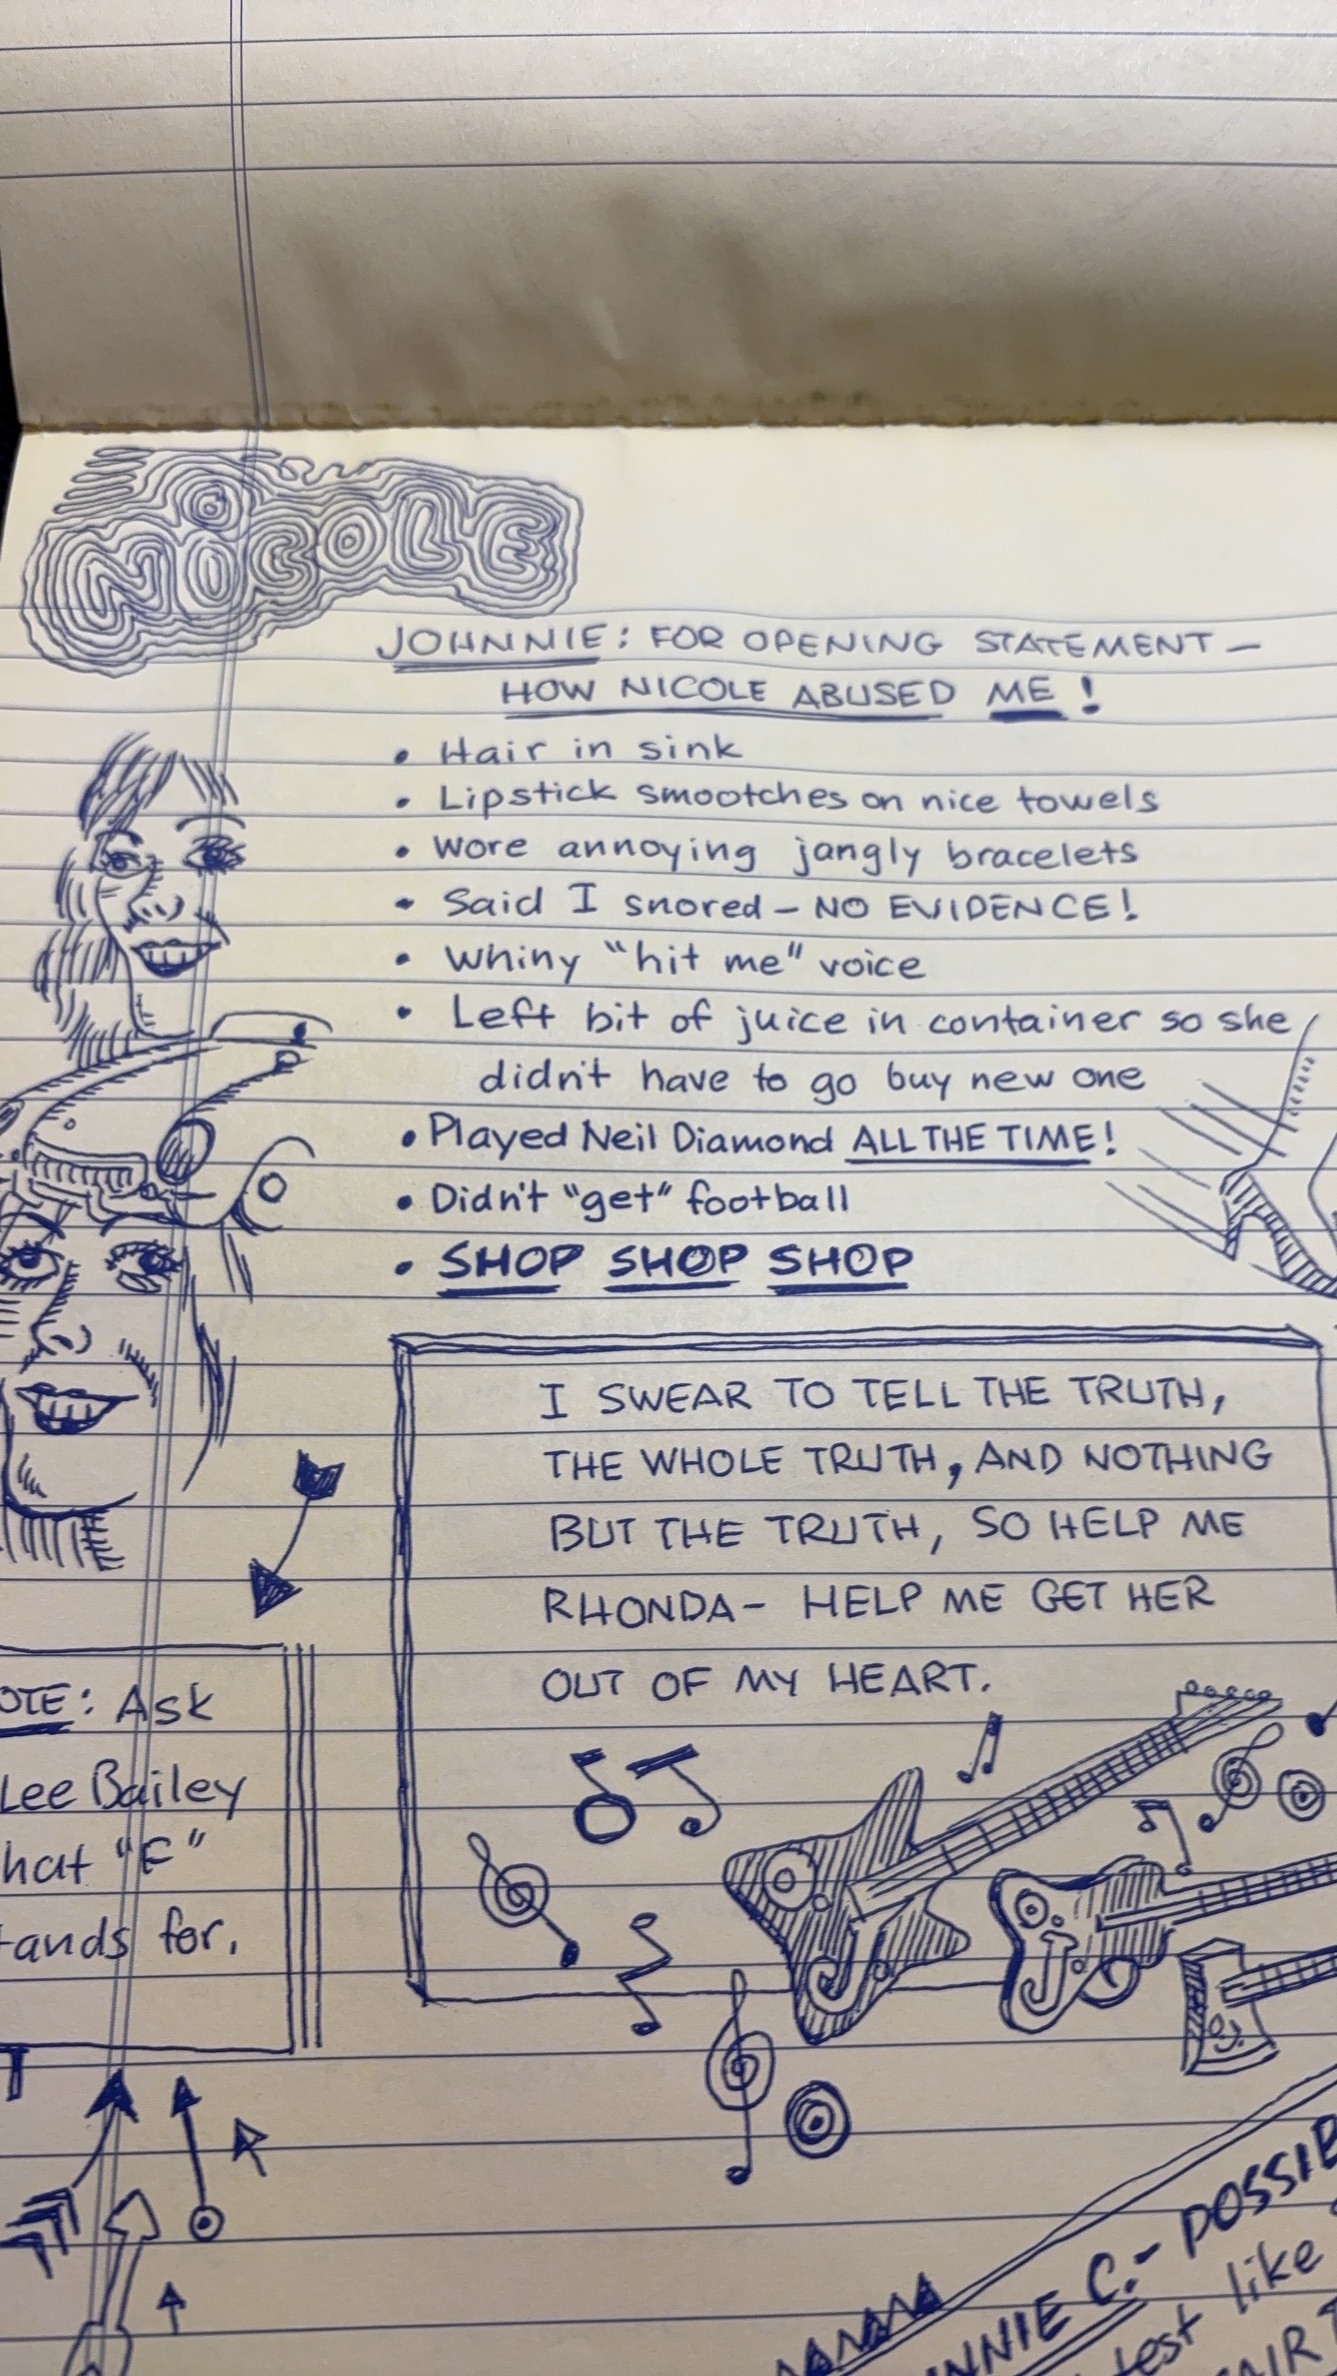 NICOLE
JOHNNIE: FOR OPENING STATEMENT —
HOW NICOLE ABUSED ME!
• Hair in sink
• Lipstick smootches on nice towels
• Wore annoying jangly bracelets
• Said I snored — NO EVIDENCE!
• Whiny "hit me" voice
• Left bit of juice in container so she
didn't have to go buy new one
• Played Neil Diamond ALL THE TIME!
• Didn't "get" football
• SHOP SHOP SHOP
I SWEAR TO TELL THE TRUTH,
THE WHOLE TRUTH, AND NOTHING
BUT THE TRUTH, SO HELP ME
RHONDA— HELP ME GET HER
OUT OF MY HEART.
OTE: Ask
Lee Bailey
hat "F"
tands for.
T
NNIE C.- POSSIB
test like
AIR